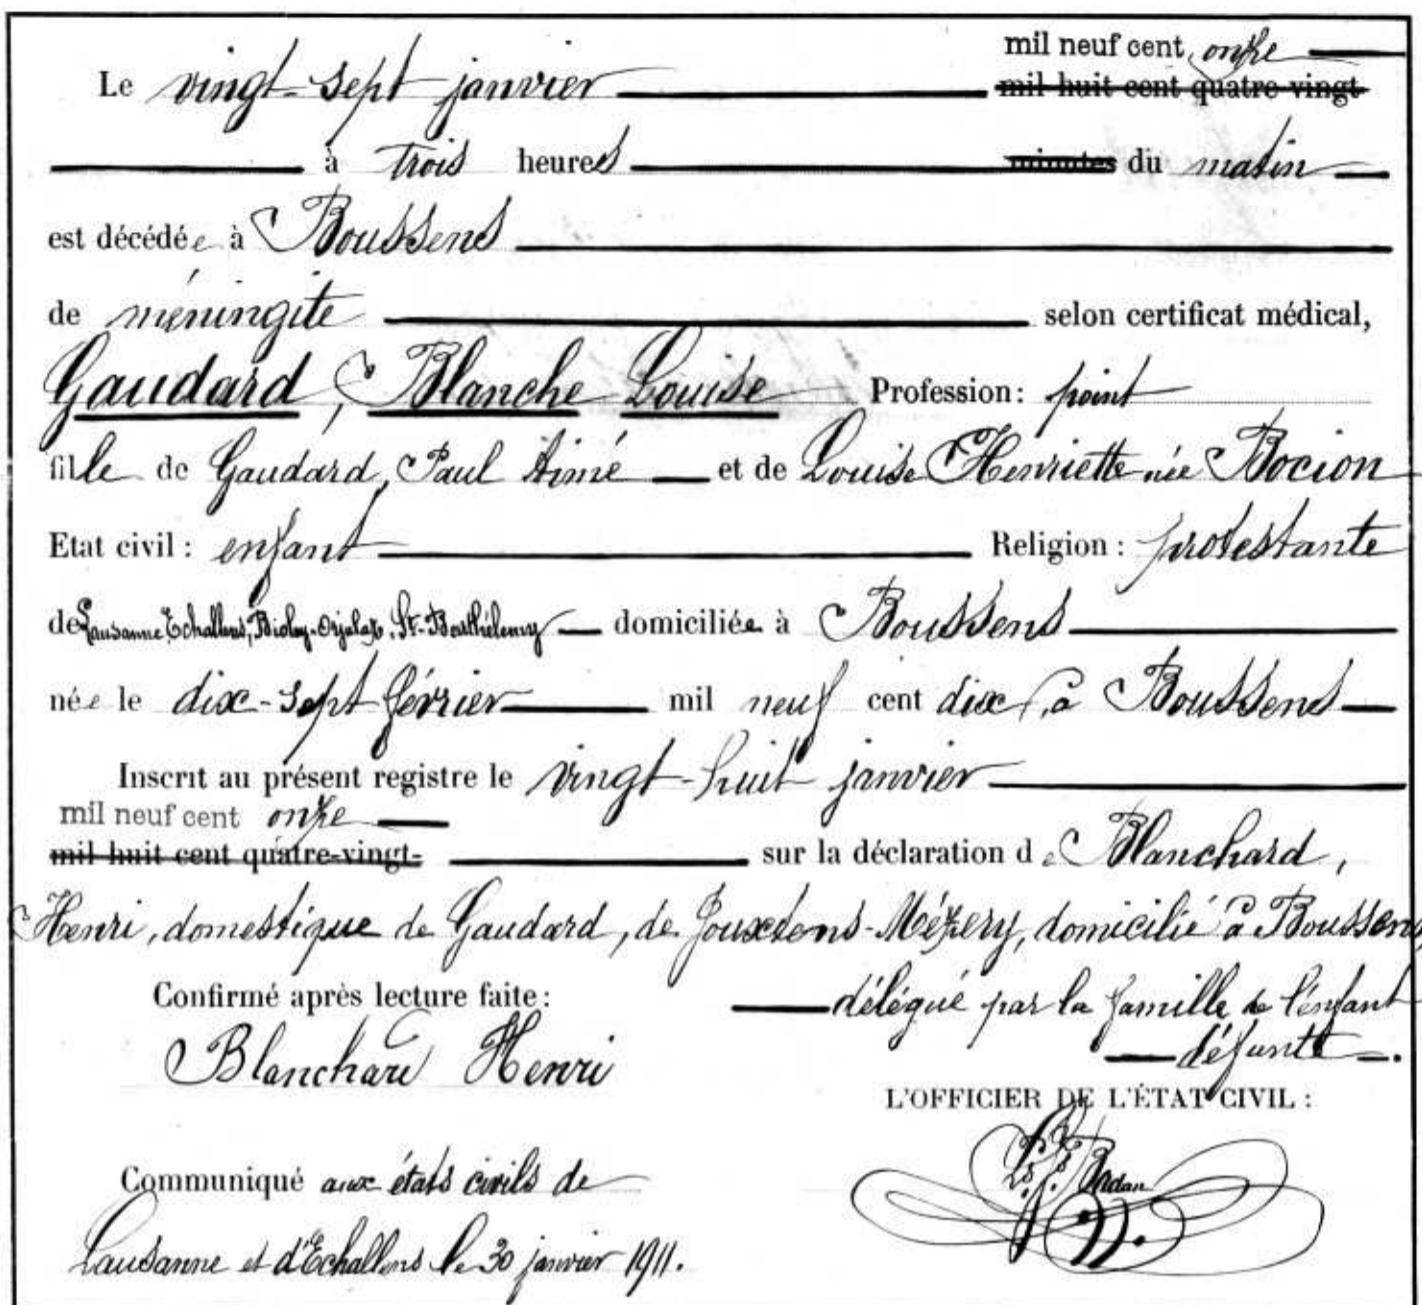 mil neuf cent onze
Le vingt-sept janvier mil huit cent quatre-vingt
à trois heures minutes du matin
est décédée à Boussens
de méningite selon certificat médical,
Gaudard, Blanche Louise Profession: point
fille de Gaudard, Paul Aimé et de Louise Henriette née Bocion
Etat civil: enfant Religion: protestante
de Lausanne, Echallens, Bioley-Orjulaz, St-Barthélemy domiciliée à Boussens
née le dix-sept février mil neuf cent dix, à Boussens
Inscrit au présent registre le vingt-huit janvier
mil neuf cent onze
mil huit cent quatre-vingt- sur la déclaration de Blanchard,
Henri, domestique de Gaudard, de Jouxtens-Mézery, domicilié à Boussens,
Confirmé après lecture faite: délégué par la famille de l'enfant
défunte.
Blanchard Henri
L'OFFICIER DE L'ÉTAT CIVIL:
Communiqué aux états civils de
Lausanne et d'Echallens le 30 janvier 1911.